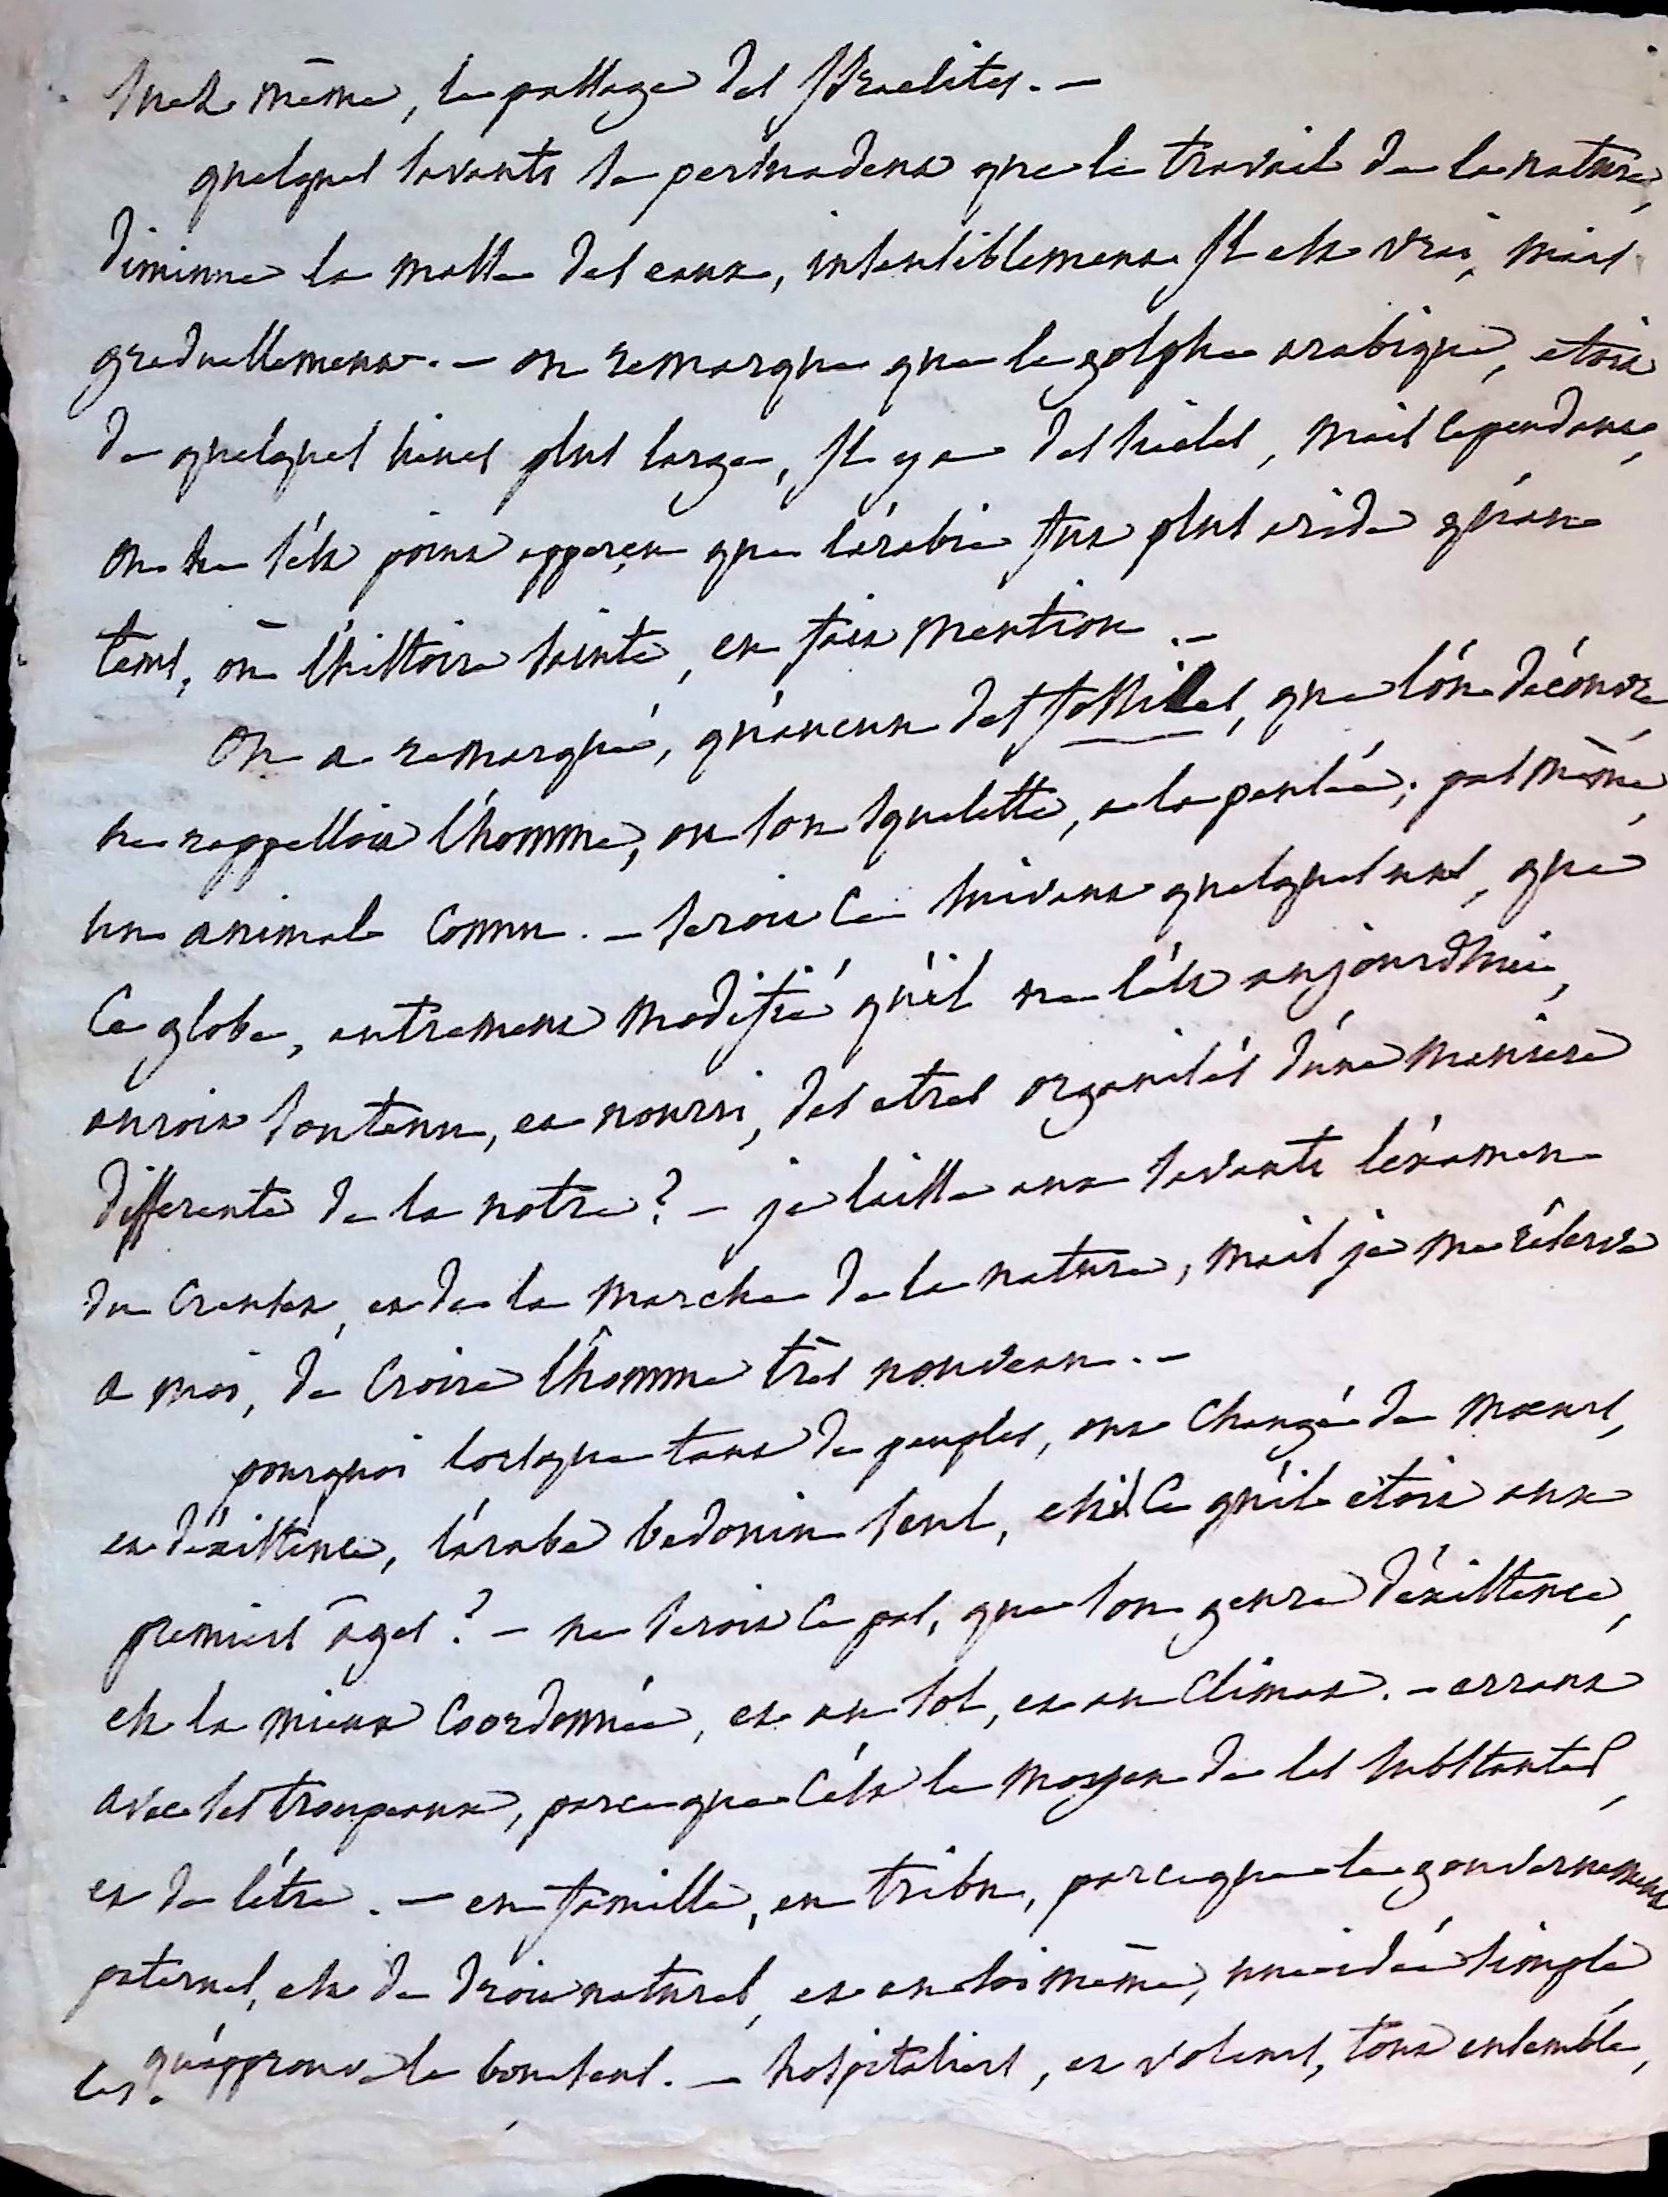 Suez même, le passage des Israelites. –
quelques savants se persuadent que le travail de la nature,
diminue la masse des eaux, insensiblement Il est vrai, mais
graduellement. – on remarque que le golphe arabique, etoit
de quelques lieues plus large, Il y a des siecles, mais cependant,
on ne s'est point apperçu que l'arabie fut plus aride qu'au
tems, où l'histoire sainte, en fait mention. –
On a remarqué, qu'aucun des fossiles, que l'on découvre,
ne rappelloit l'homme, ou son squelette, a la pensée; pas même,
un animal connu. – seroit ce suivant quelques uns, que
Ce globe, autrement modifié qu'il ne l'est aujourd'hui,
auroit soutenu, et nourri, des etres organisés d'une maniere
differente de la notre? – je laisse aux savants l'examen
du creuset, et de la marche de la nature, mais je me réserve
a moi, de croire l'homme très nouveau. –
pourquoi lorsque tant de peuples, ont changé de mœurs,
et d'éxistence, l'arabe bedouin seul, est il ce qu'il etoit aux
premiers âges? – ne seroit ce pas, que son genre d'éxistence,
est le mieux coordonnée, et au sol, et au climat. – errant
avec ses troupeaux, parceque c'est le moyen de les substanter,
et de l'étre. – en famille, en tribu, parceque le gouvernement
paternel, est de droit naturel, et en soi même, une idée simple
qu'approuve le bon sens. – hospitaliers, et voleurs, tout ensemble,
les.